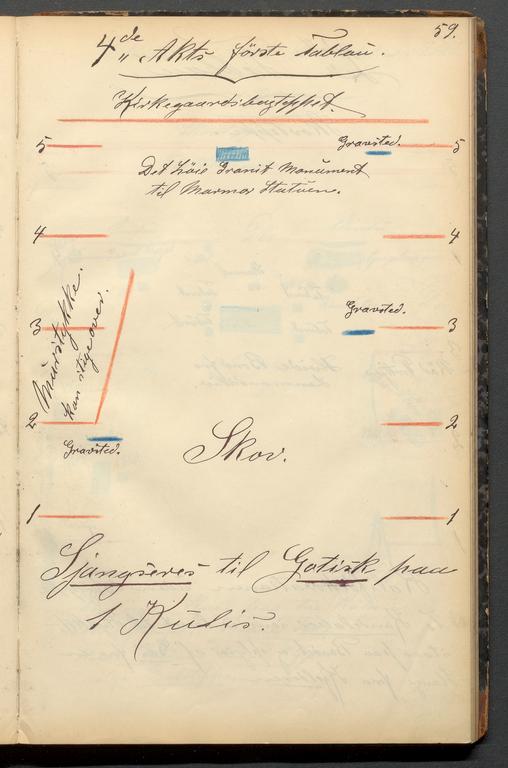 59.
4de Akts første Tablau.
Kirkegaardsbagteppet.
5
Gravsted.
5
Det høie Granit Monument
til Marmor Statuen.
4
4
Murstykke.
kan stige over.
Gravsted.
3
3
2
2
Gravsted.
Skov.
1
1
Sjangseres til Gotisk paa
1 Kulis.